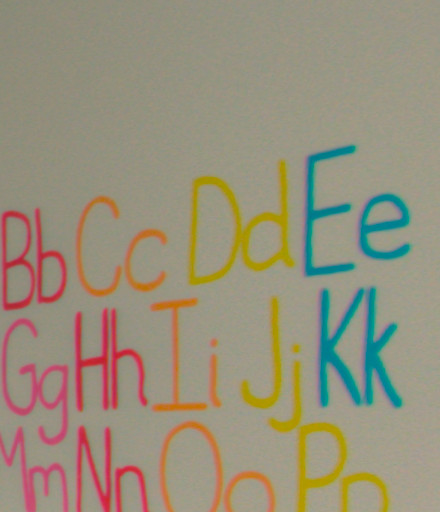 Bb Cc Dd Ee
Gg Hh Ii Jj Kk
Mm Nn Oo Pp